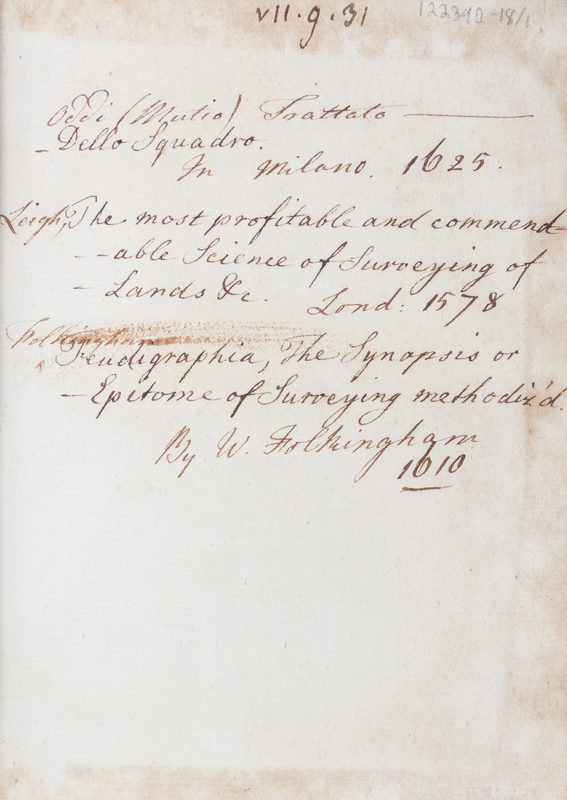 VII.9.31
122390-18/1
Oddi (Mutio) Trattato
Dello Squadro.
In Milano. 1625.
Leigh, The most profitable and commend-
--able Science of Surveying of
- Lands &c. Lond: 1578
Folkingham
Feudigraphia, The Synopsis or
- Epitome of Surveying methodiz'd.
By W. Folkingham
1610